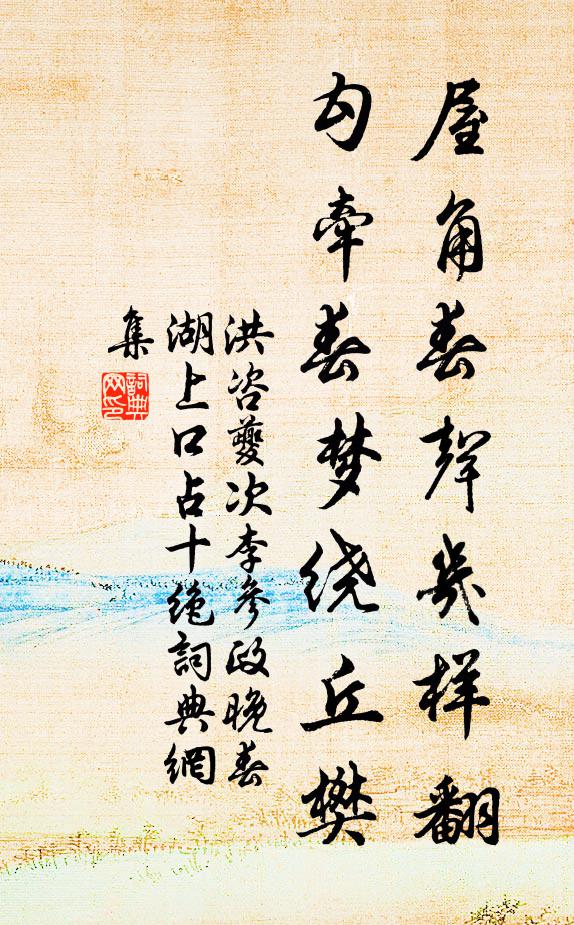 屋角春聲幾样翻
勾牽春梦绕丘樊
洪咨夔次李參政晚春
湖上口占十绝詞典網
集
詞典
网印